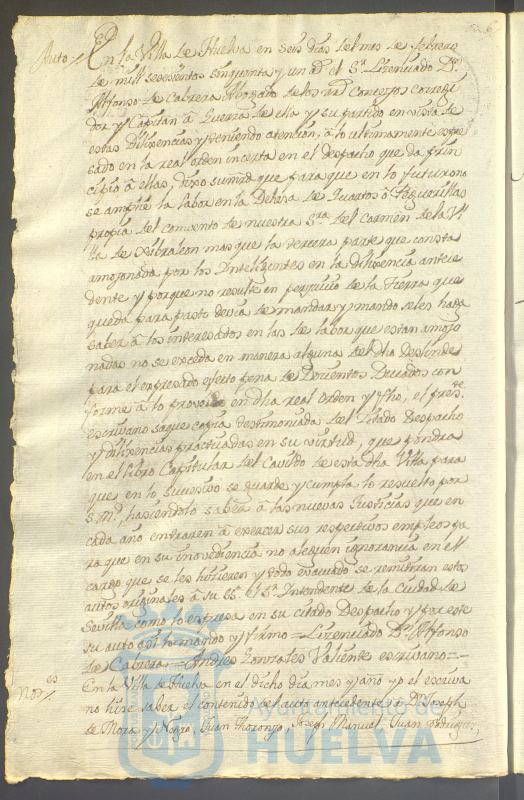 Auto // En la Villa de Huelva en seis dias del mes de febrero
de mill setezientos sinquenta y un a.s el S.r Lizenziado D.n
Alfonso de Cabrera Abogado de los rr.s Conzejos correxi
dor y Capitan â Guerra de ella y su partido en vista de
estas Dilixencias y teniendo atencion, â lo ultimamente expre
sado en la real orden incerta en el despacho que da prin
cipio â ellas, dixo su mrd que para que en lo futuro no
se amplie la labor en la Dehesa de Quartos ô Baquerillas
propia del convento de nuestra S.ra del Carmen de la Vi
lla de Xibraleon mas que la tercera parte que consta
amojonada por los Inteligentes en la dilixencia antece
dente y porque no resulte en perjuicio de la tierra que
queda para pasto devia de mandar y mando se les haga
saber â los interesados en las de labor que estan amojo
nadas no se exceda en manera alguna del dho deslinde
para el expresado efecto pena de Docientos Ducados con
forme â lo proveido en dha real orden y q.e Yo, el pres.te
escrivano saque copia testimoniada del citado Despacho
y dilixencias practicadas en su virtud, que pondra
en el libro Capitular del Cavildo de esta dha Villa para
que en lo sucesivo se guarde y cumpla lo resuelto por
S.M., haciendolo saber â las nuevas Justicias que en
cada año entraren â exercer sus respectivos empleos pa
ra que en su inovediencia no aleguen ignorancia en el
cargo que se les hizieren y todo evacuado se remitiran estos
autos originales â su S.a el S.r Intendente de la Ciudad de
Sevilla como lo expresa en su citado Despacho y por este
su auto asi lo mando y firmo = Lizenziado D.n Alfonso
de Cabrera = Andres Gonzales Valiente escrivano =
Not.es // En la Villa de Huelva en el dicho dia mes y año yo el escriva
no hise saber el contenido del auto antecedente â D.n Joseph
de Mora y Negro, Juan Thoronjo, Joseph Manuel, Juan Rodriguez,
Ayuntamiento de
HUELVA